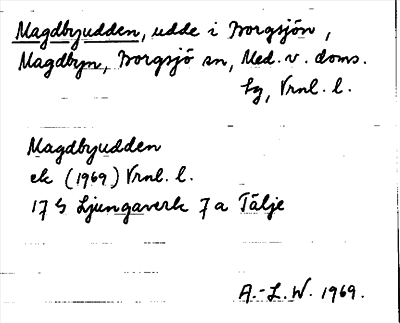 Magdbyudden, udde i Borgsjön,
Magdbyn, Borgsjö sn, Med. v. doms.
lg, Vrnl. l.
Magdbyudden
ek (1969) Vrnl. l.
17 G Ljungaverk 7 a Tälje
A.-L.W. 1969.